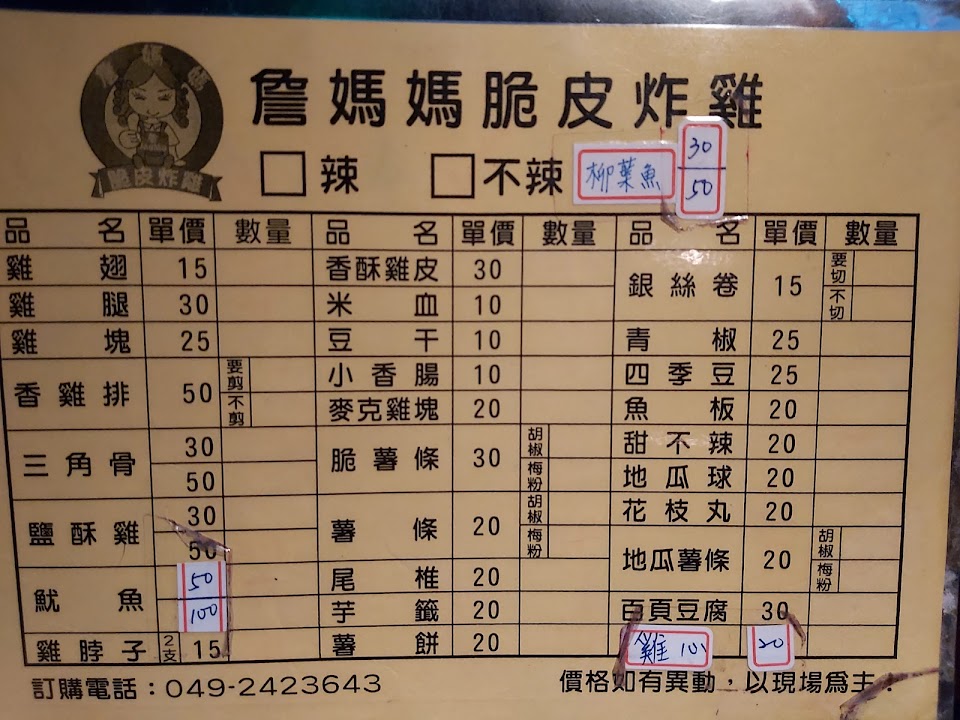 詹媽媽
脆皮炸雞
詹媽媽脆皮炸雞
辣 不辣 柳葉魚 30 50
品名 單價 數量 品名 單價 數量 品名 單價 數量
雞翅 15 香酥雞皮 30 銀絲卷 15 要切 不切
雞腿 30 米血 10
雞塊 25 豆干 10 青椒 25
香雞排 50 要剪 不剪 小香腸 10 四季豆 25
麥克雞塊 20 魚板 20
三角骨 30 脆薯條 30 胡椒 梅粉 甜不辣 20
50 地瓜球 20
鹽酥雞 30 薯條 20 胡椒 梅粉 花枝丸 20
50 地瓜薯條 20 胡椒 梅粉
魷魚 50 尾椎 20
100 芋籤 20 百頁豆腐 30
雞脖子 2支 15 薯餅 20 雞 20
訂購電話：049-2423643 價格如有異動，以現場為主！